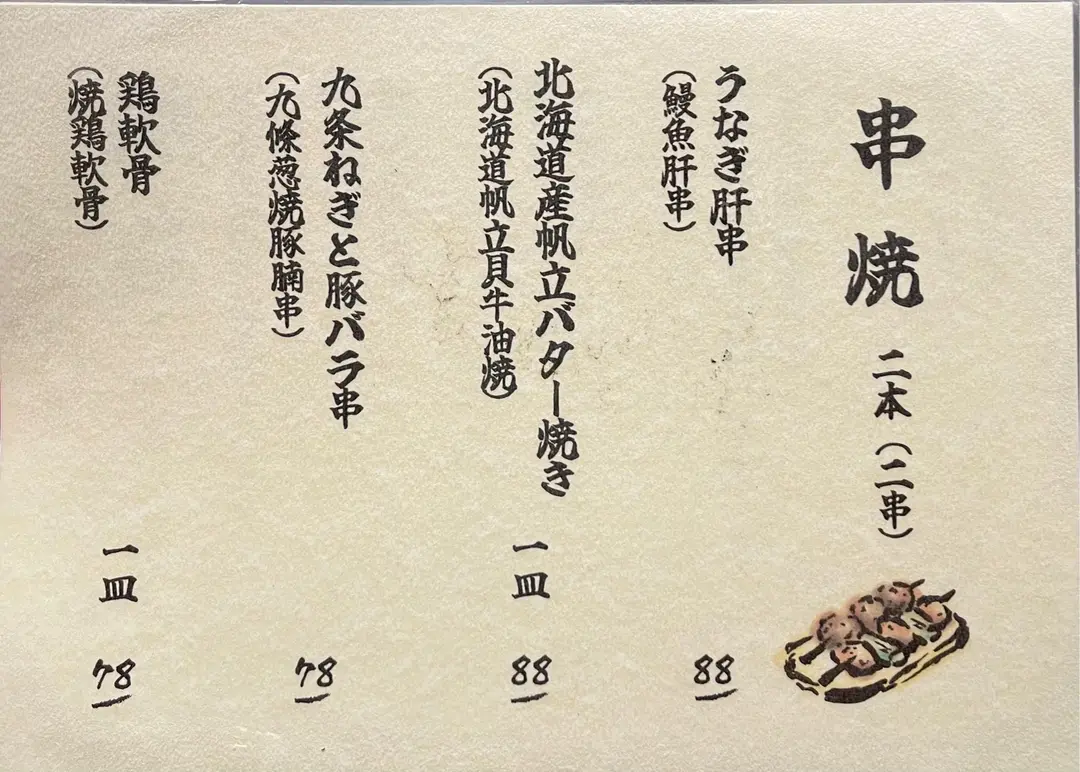 串焼 二本（二串）
うなぎ肝串
（鰻魚肝串）
88
北海道産帆立バター焼き 一皿
（北海道帆立貝牛油焼）
88
九条ねぎと豚バラ串
（九條葱焼豚腩串）
78
鶏軟骨 一皿
（焼鶏軟骨）
78